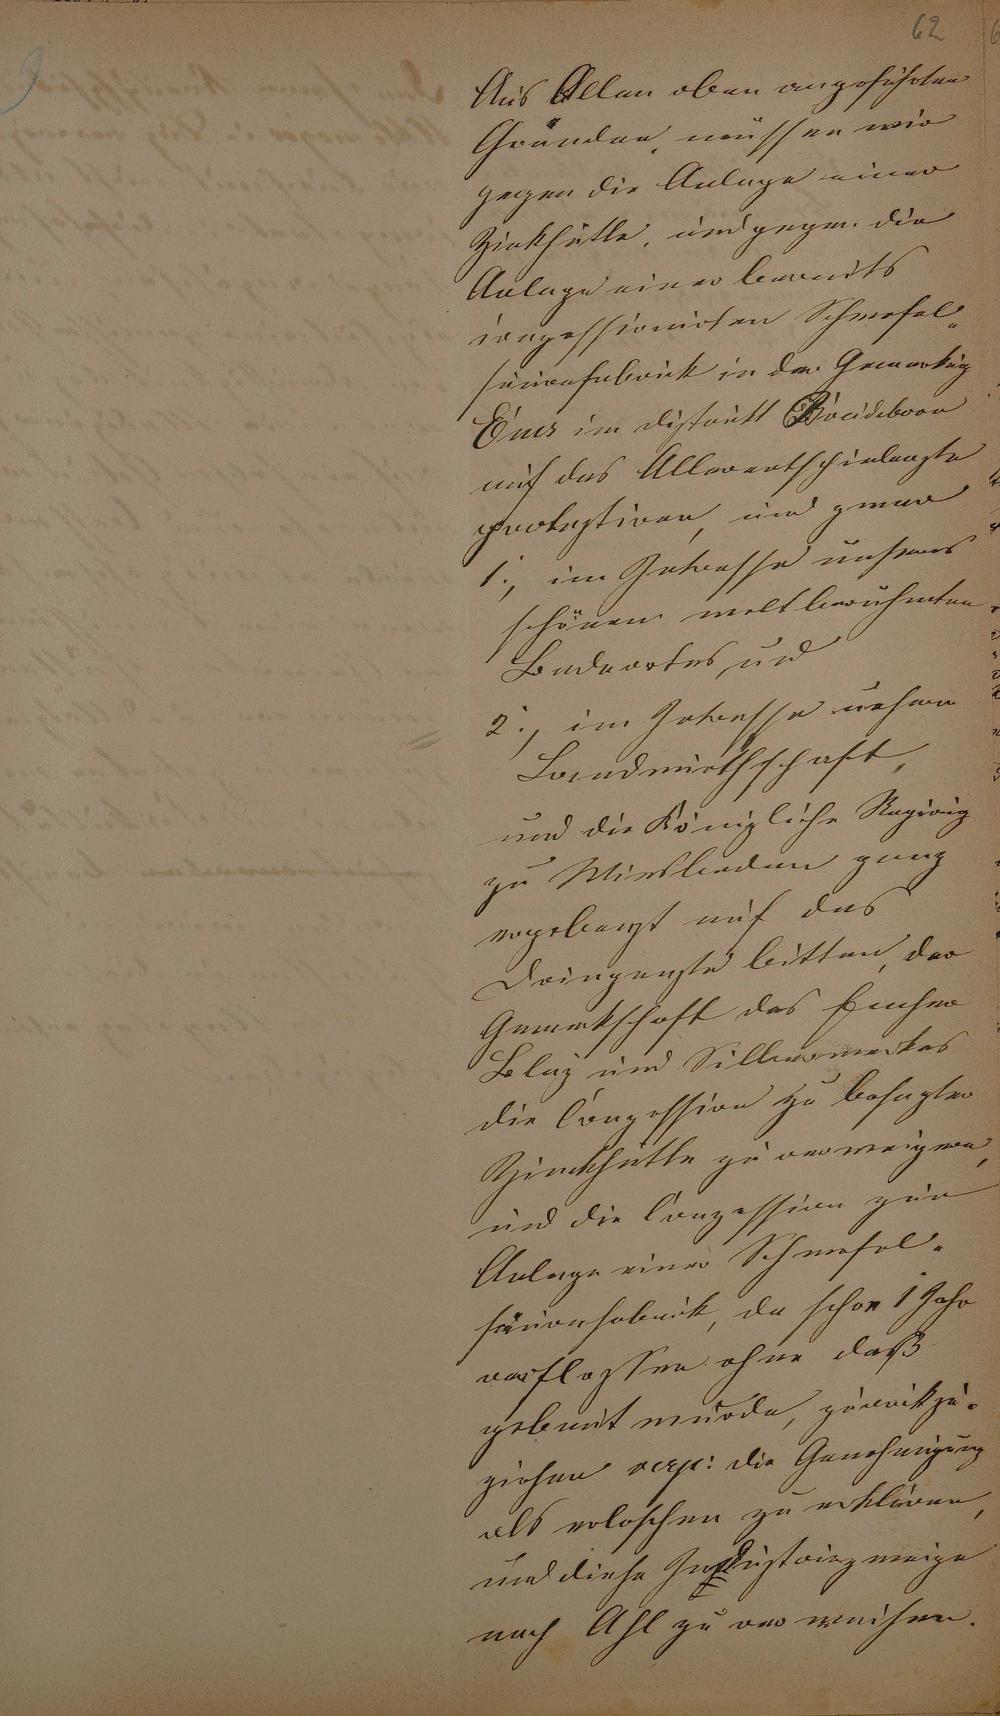 62
Aus Allen oben angeführten
Gründen, müssen wir
gegen die Anlage einer
Zinkhütte, und gegen die
Anlage einer bereits
conzessionirten Schwefel„
säurefabrick in der Gemarkug
Ems im districkt
auf das Allerentschiedenzte
proteztiren, und zwar
1., im Intresse unseres
schönen weltberühmten
Badeortes, und
2., im Intresse unserer
Landwirthschaft,
und die Königliche Regirug
zu Wiesbaden ganz
ergebenzt auf das
Dringenzte bitten, der
Gewerkschaft des Emser
Bley und Silberwerkes
die Conzession zu besagter
Zinckhütte zu verweigern,
und die Conzession zur
Anlage einer Schwefel„
säurenfabrick, da schon 1 Jahr
verflossen ohne daß
gebaut wurde, zurückzu„
ziehen resp: die Genehmigung
als erloschen zu erklären,
und diese Industriezweige
nach Ahl zu verweisen.